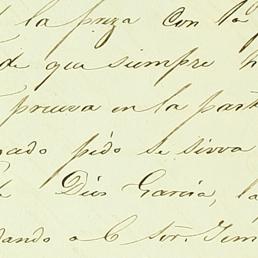 la preza con la
de que siempre h
prueva en la part
gado pido se sirva
de Dios Garcia, la
dando a C Sor. Tem